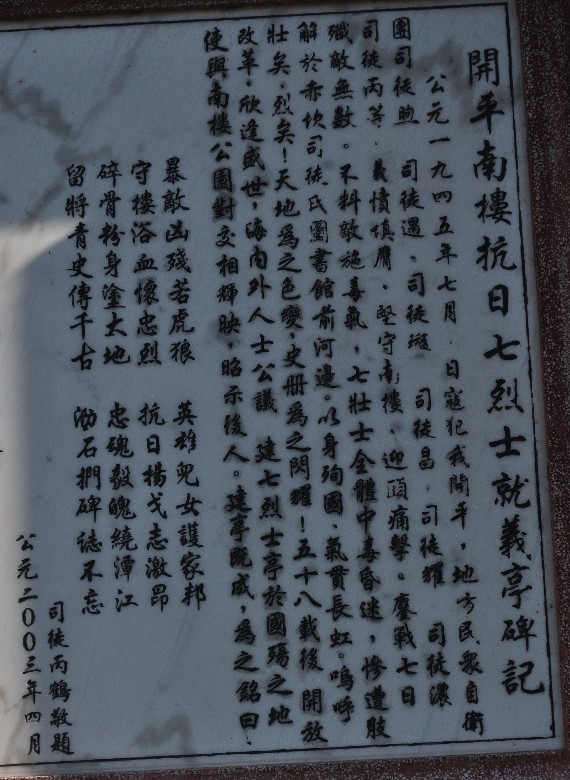 開平南樓抗日七烈士就義亭碑記
公元一九四五年七月．日寇犯我開平，地方民衆自衛
團司徒煦．司徒遇．司徒璇．司徒昌．司徒耀．司徒濃．
司徒丙等．義憤填膺．堅守南樓．迎頭痛擊。鏖戰七日
殲敵無數。不料敵施毒氣，七壯士全體中毒昏迷，慘遭肢
解於赤坎司徒氏圖書館前河邊。以身殉國．氣貫長虹。嗚呼
壯矣．烈矣！天地爲之色變．史册爲之閃耀！五十八載後．開放
改革．欣逢盛世，海内外人士公議．建七烈士亭於國殤之地
使與南樓公園對交相輝映．昭示後人。建亭旣成，爲之銘曰．
暴敵凶殘若虎狼　英雄兒女護家邦
守樓浴血懷忠烈　抗日楊戈志激昂
碎骨粉身塗大地　忠魂毅魄繞潭江
留將青史傳千古　泐石捫碑誌不忘
司徒丙鶴敬題
公元二00三年四月